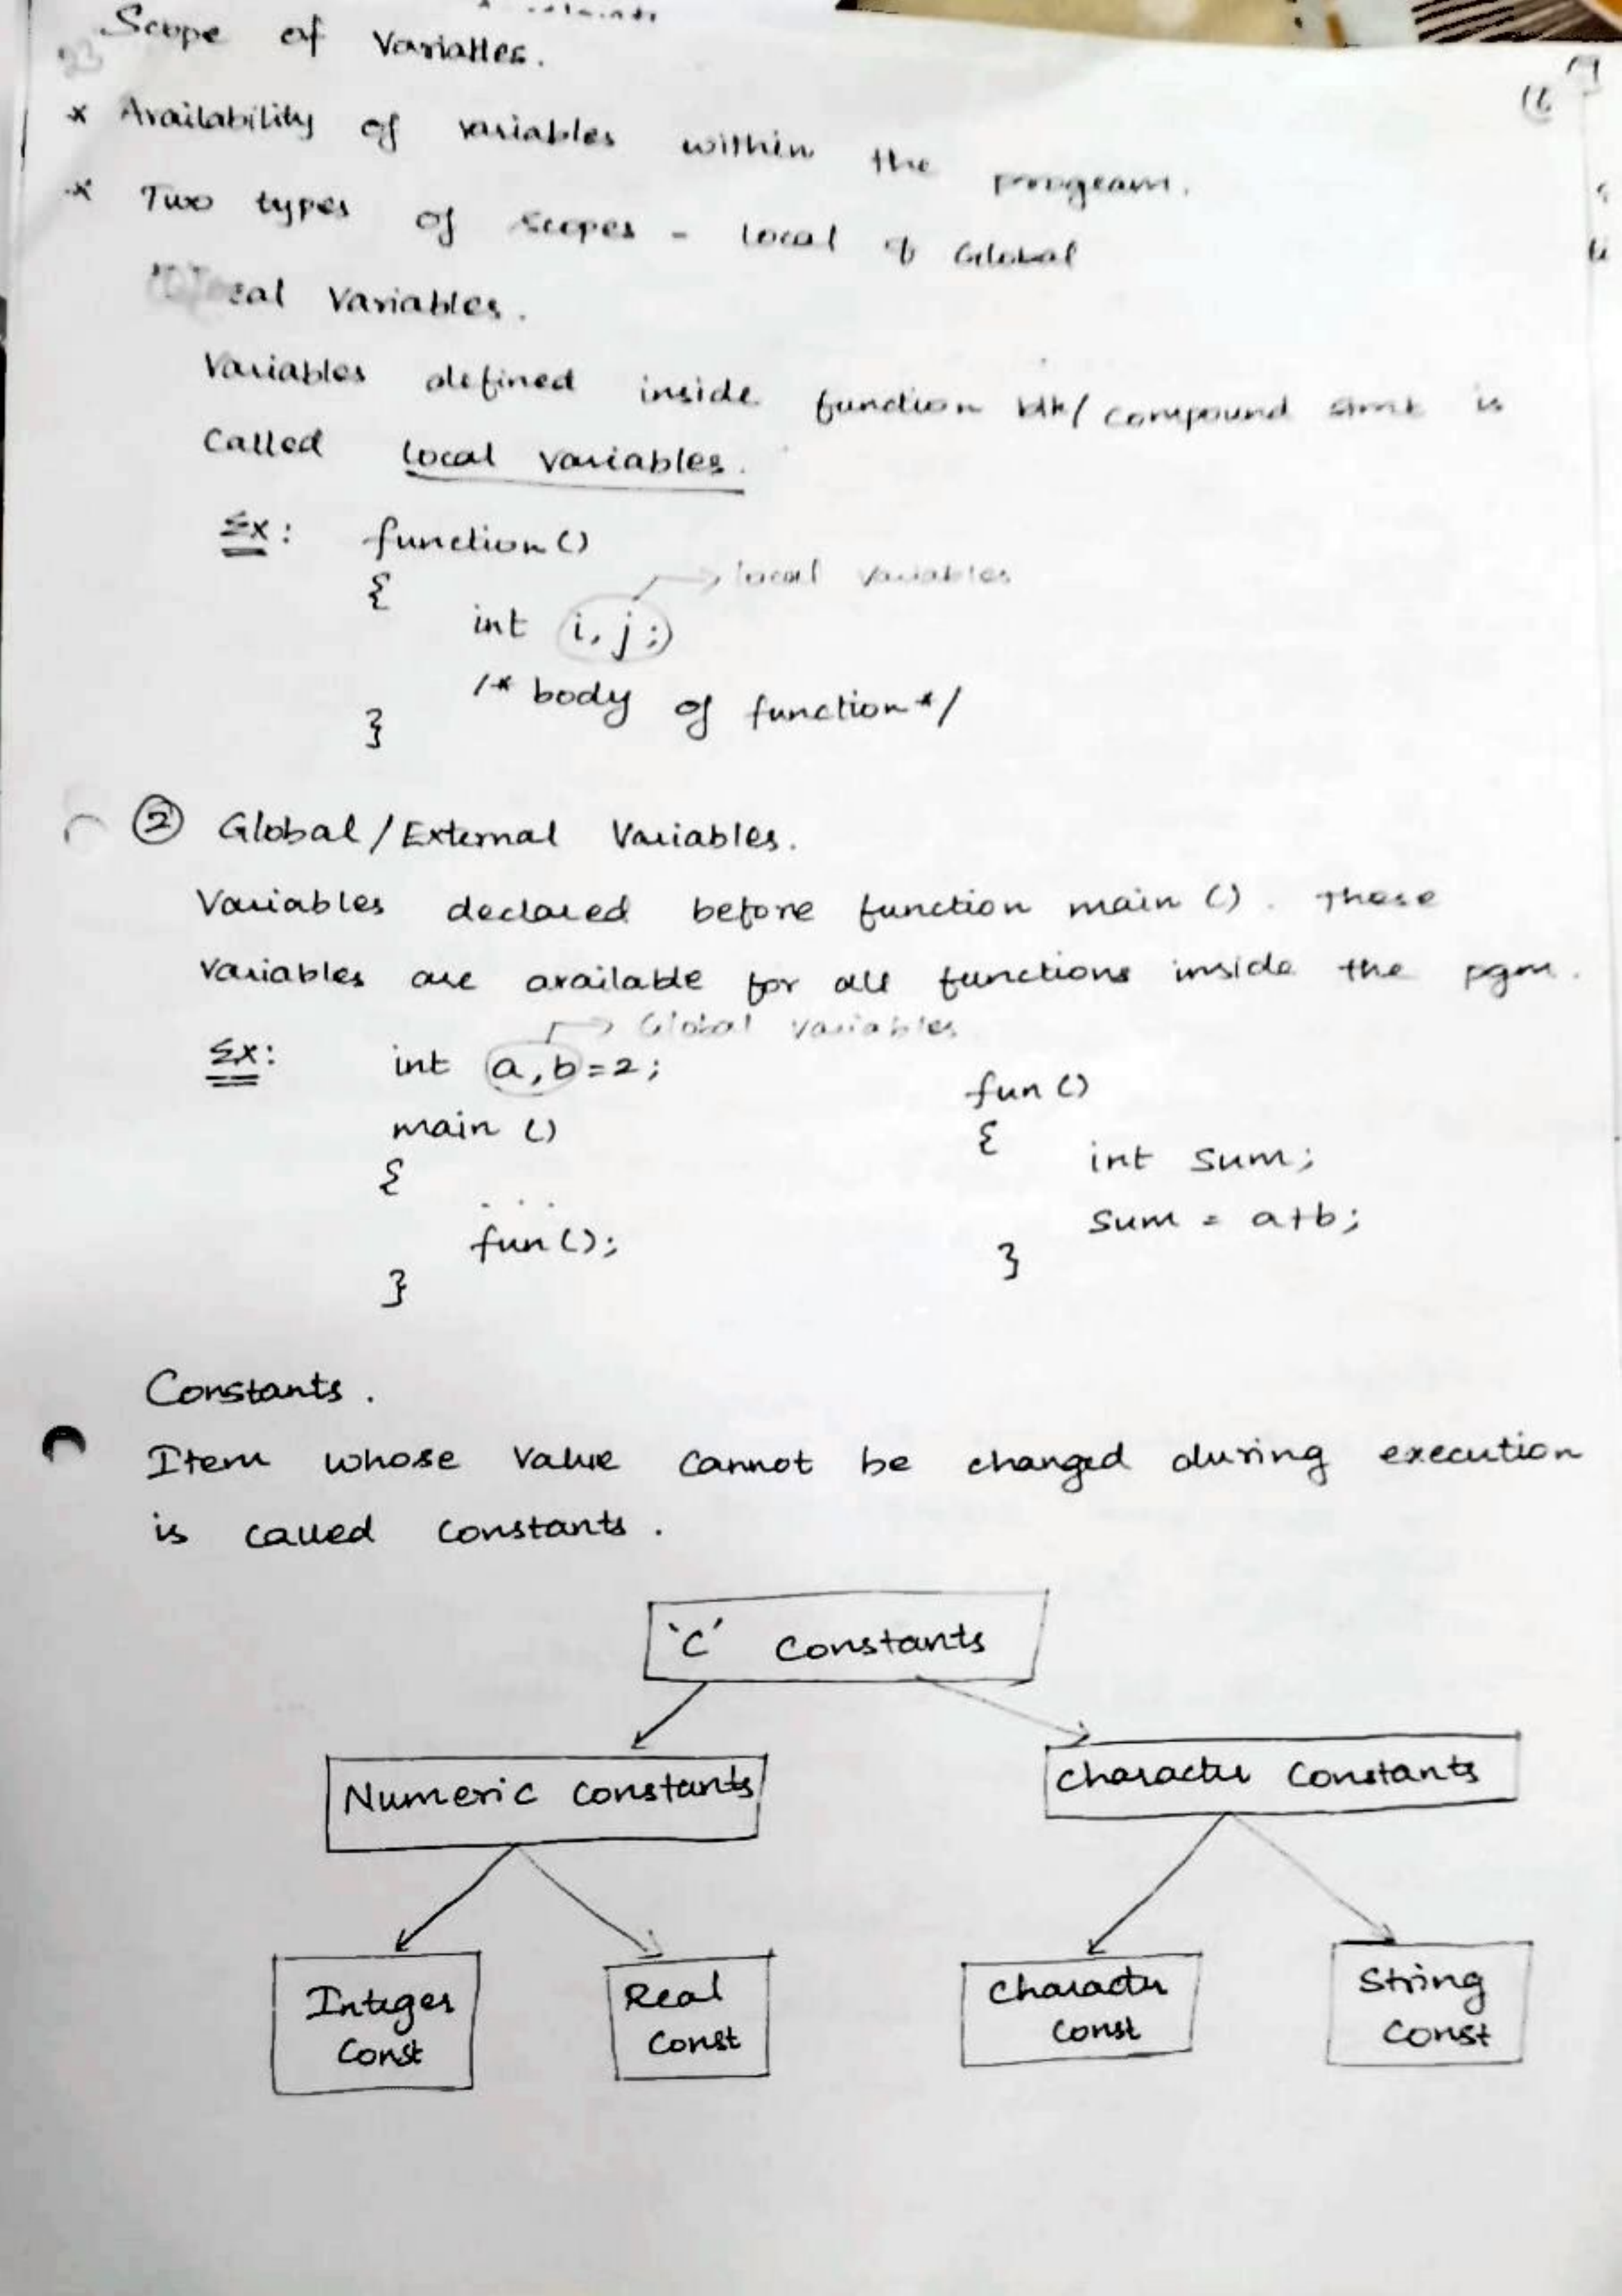 Scope of Variables.
* Availability of variables within the program.
* Two types of scopes - local & Global
Variables.
Variables defined inside function blk/ compound stmt is
Called local variables.
Ex: function ()
{
→ local variables
int i, j;
/* body of function */
}
② Global/External Variables.
Variables declared before function main (). These
Variables are available for all functions inside the pgm.
→ Global variables
Ex: int a, b=2;
main ()
{
. . .
fun ();
}
fun ()
{
int sum;
sum = a+b;
}
Constants.
Item whose value cannot be changed during execution
is called constants.
'C' Constants
Numeric constants
Character Constants
Integer
Const
Real
Const
Character
Const
String
Const